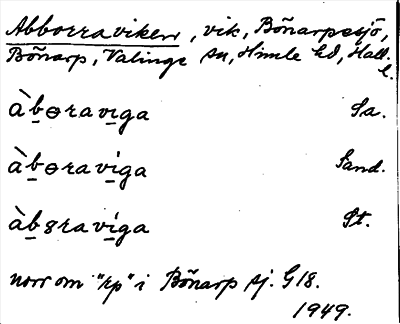 Abborraviken, vik, Bönarpssjö,
Bönarp, Valinge sn, Himle hd, Hall.
l.
àb̲ɵravi̲ga Sa.
àb̲ɵravi̲ga Sand.
àb̲8ravi̲ga St.
norr om "rp" i Bönarp sj. G18.
1949.